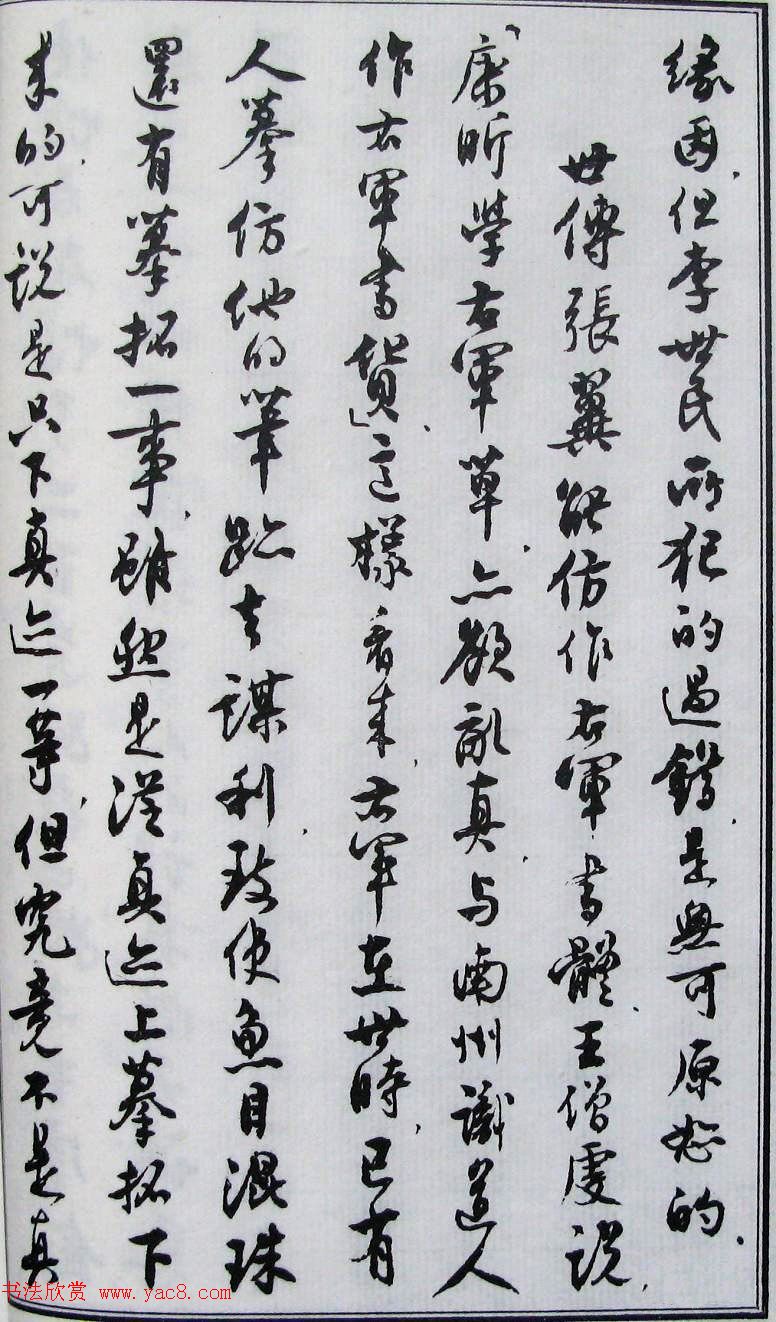 緣因,但李世民所犯的過錯,是無可原恕的.
世傳張翼能仿作右軍書體,王僧虔說,
「康昕學右軍草,亦欲亂真,与南州識道人
作右軍書貨」,這樣看來,右軍在世時,已有
人摹仿他的筆跡去謀利,致使魚目混珠
還有摹拓一事,雖然是從真迹上摹拓下
來的,可說是只下真迹一等,但究竟不是真
书法欣赏 www.yac8.com